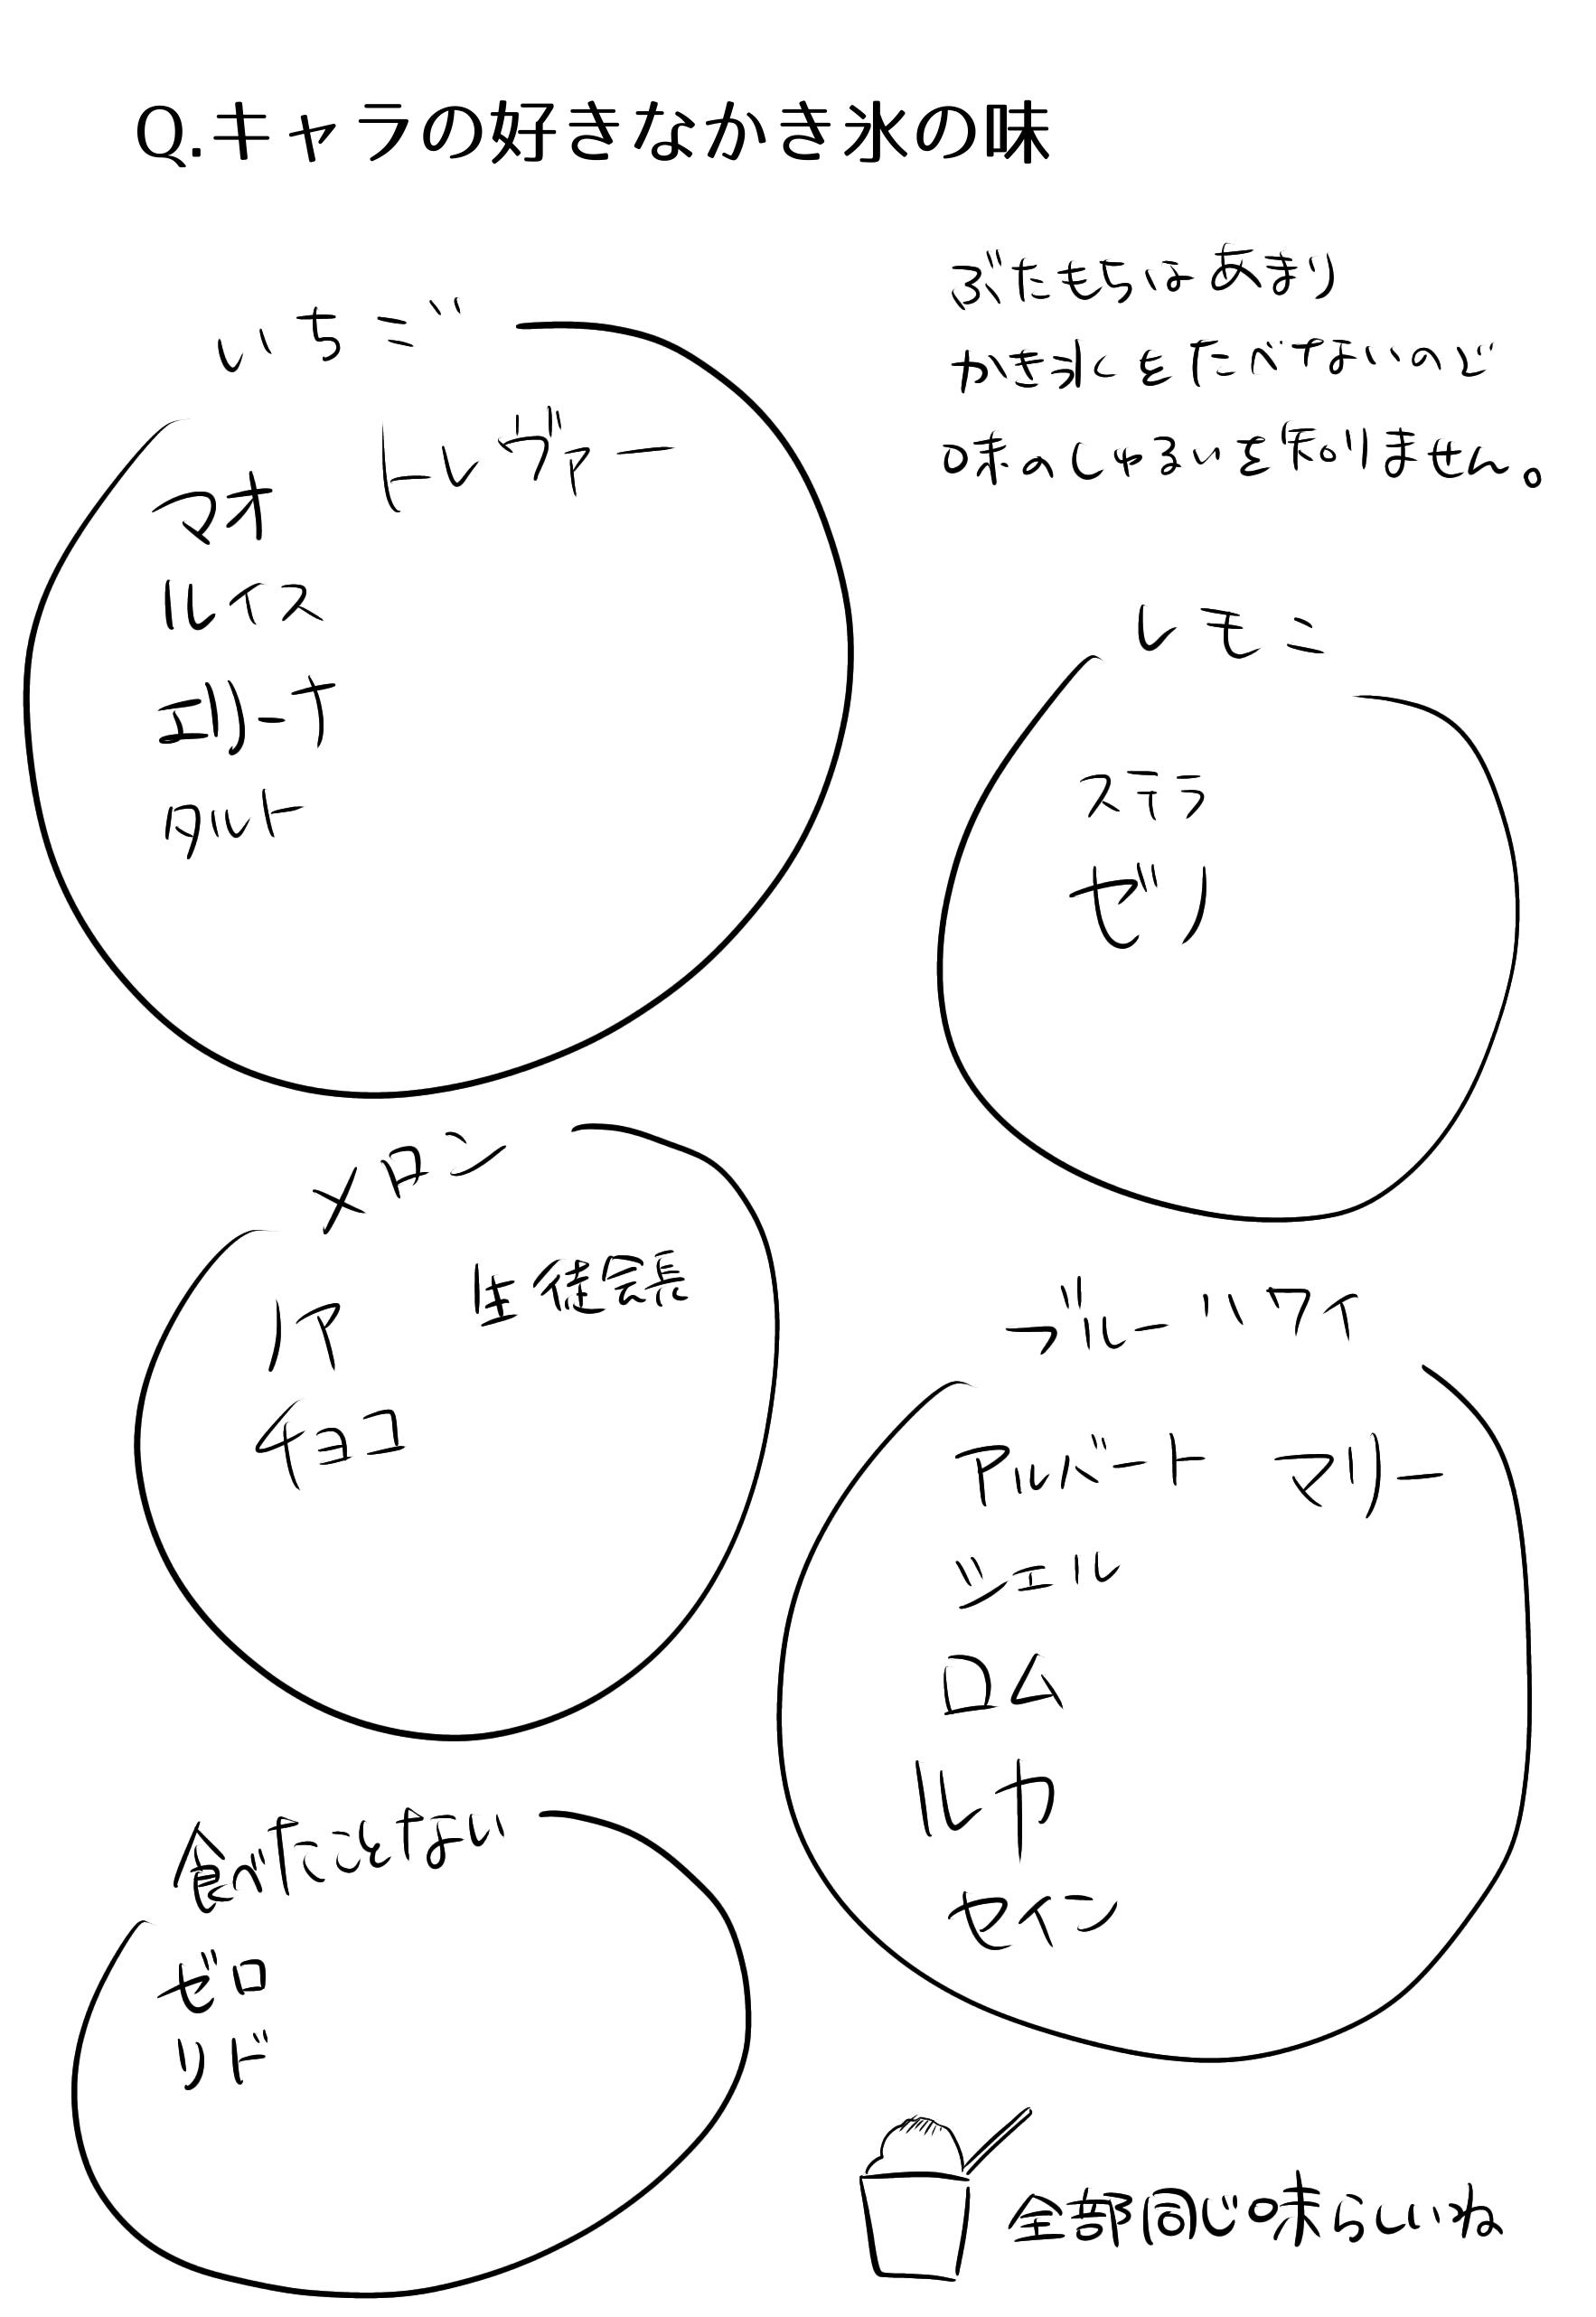 Q.キャラの好きなかき氷の味
ぶたもちはあまり
かき氷をたべてないので
味のしゅるいを知りません。
いちご
トレヴァー
マオ
ルイス
エリーナ
タルト
レモン
ステラ
ゼノ
メロン
生徒会長
ノア
チョコ
ブルーハワイ
アルバート マリー
ジェル
ロム
ルカ
セイン
食べたことない
ゼロ
リド
全部同じ味らしいね